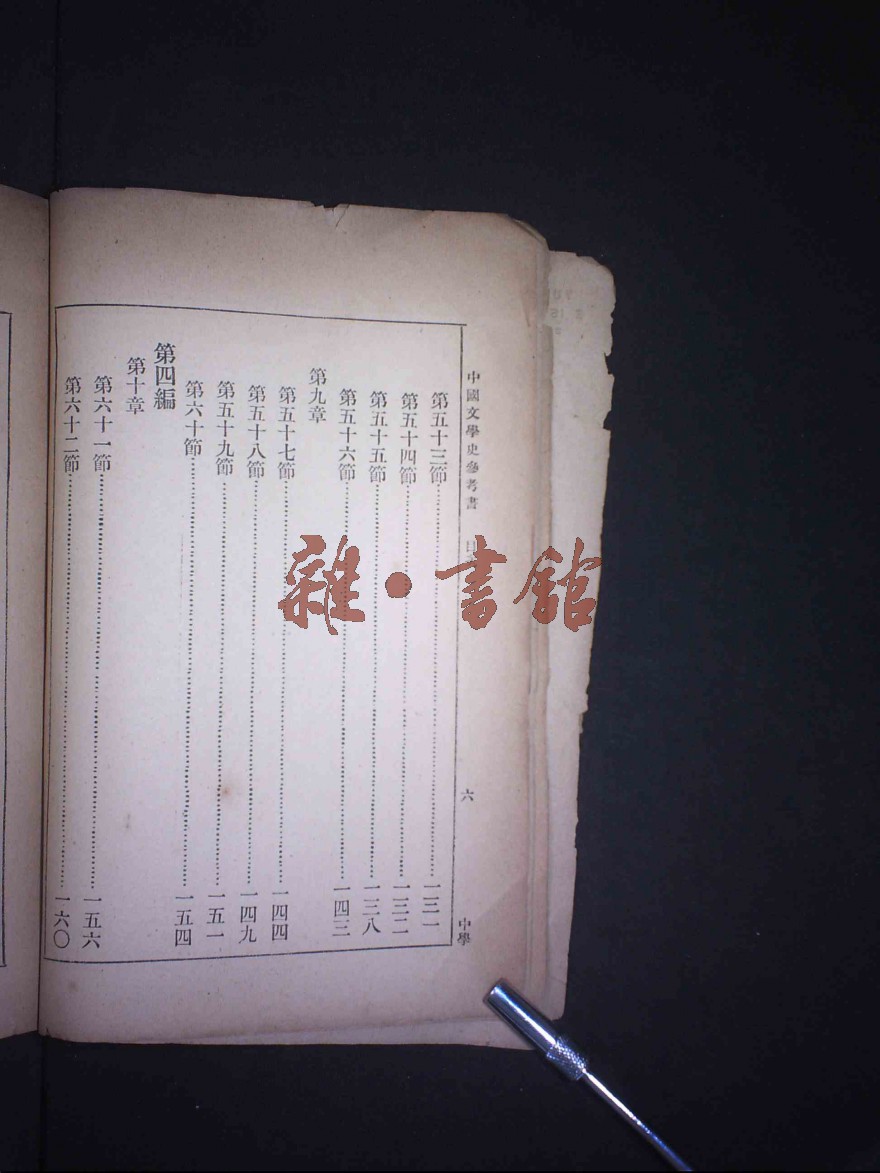 中國文學史參考書 目 六 中學
第五十三節 一三一
第五十四節 一三二
第五十五節 一三八
第五十六節 一四三
第九章
第五十七節 一四四
第五十八節 一四九
第五十九節 一五一
第六十節 一五四
第四編
第十章
第六十一節 一五六
第六十二節 一六〇
雜·書館